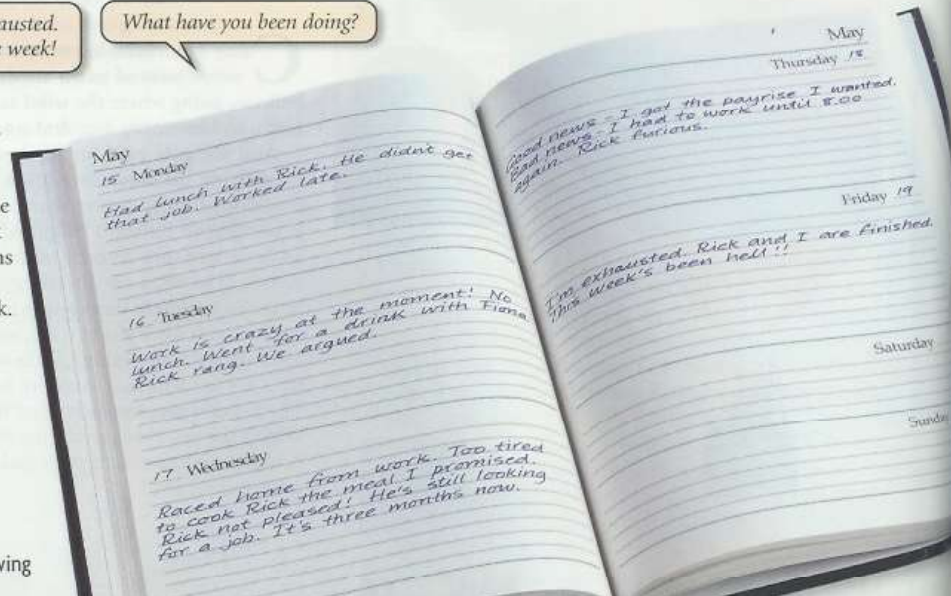 austed.
week!
What have you been doing?
May
15 Monday
Had lunch with Rick. He didn't get
that job. Worked late.
16 Tuesday
Work is crazy at the moment! No
lunch. Went for a drink with Fiona
Rick rang. We argued.
17 Wednesday
Raced home from work. Too tired
to cook Rick the meal I promised.
Rick not pleased! He's still looking
for a job. It's three months now.
May
Thursday 18
Good news - I got the payrise I wanted.
Bad news - I had to work until 8.00
again. Rick furious.
Friday 19
I'm exhausted. Rick and I are finished.
This week's been hell!!
Saturday
Sunda
k.
ving